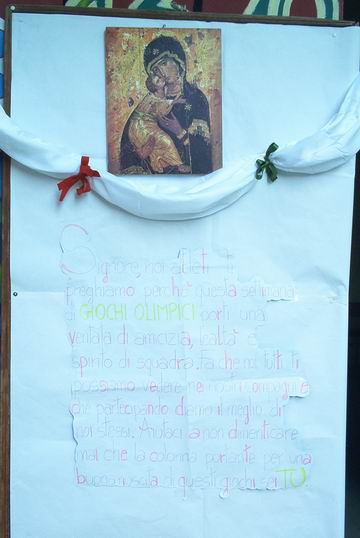 Signore, noi atleti ti
preghiamo perchè questa settimana
di GIOCHI OLIMPICI porti una
ventata di amicizia, lealtà e
spirito di squadra. Fa che noi tutti Ti
possiamo vedere nei nostri compagni e
che partecipando diamo il meglio di
noi stessi. Aiutaci a non dimenticare
mai che la colonna portante per una
buona riuscita di questi giochi sei TU.